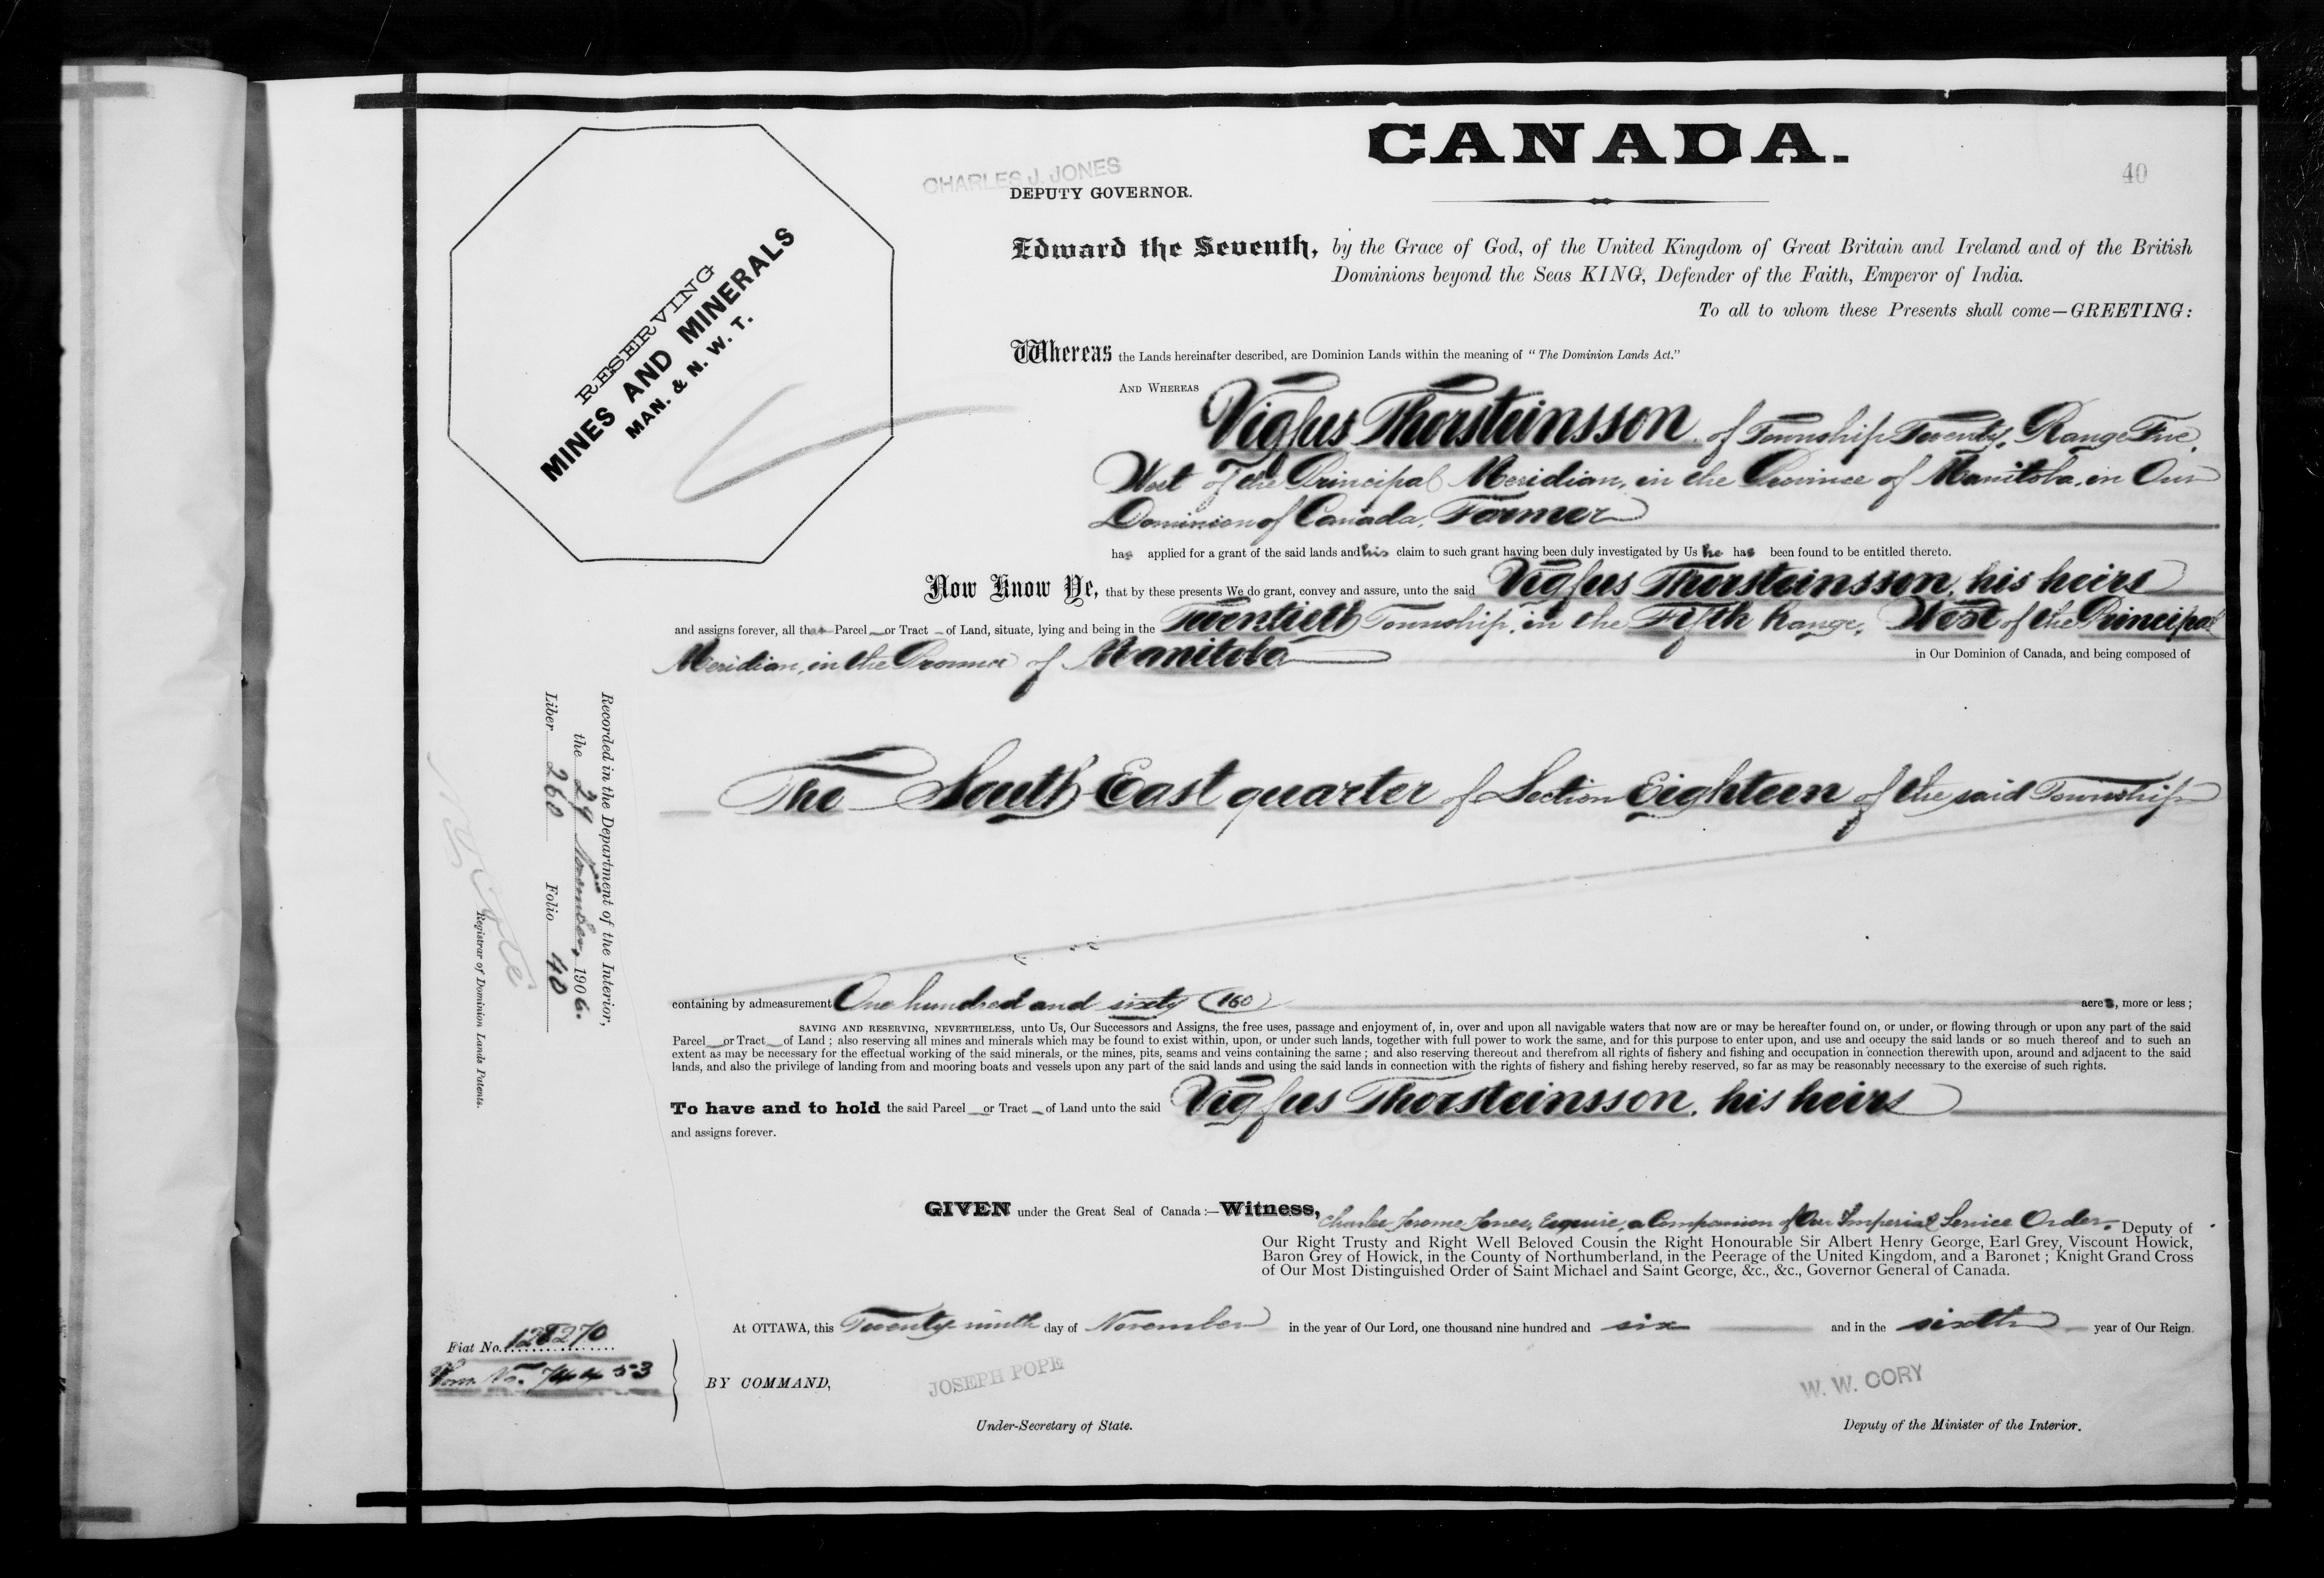 CANADA.
40
CHARLES J. JONES
DEPUTY GOVERNOR.
RESERVING
MINES AND MINERALS
MAN. & N. W. T.
Edward the Seventh, by the Grace of God, of the United Kingdom of Great Britain and Ireland and of the British
Dominions beyond the Seas KING, Defender of the Faith, Emperor of India.
To all to whom these Presents shall come—GREETING:
Whereas the Lands hereinafter described, are Dominion Lands within the meaning of "The Dominion Lands Act."
AND WHEREAS Vigfus Thorsteinsson, of Township Twenty, Range Five,
West of the Principal Meridian, in the Province of Manitoba, in Our
Dominion of Canada, Farmer
has applied for a grant of the said lands and his claim to such grant having been duly investigated by Us he has been found to be entitled thereto.
Now Know Ye, that by these presents We do grant, convey and assure, unto the said Vigfus Thorsteinsson, his heirs
and assigns forever, all that Parcel or Tract of Land, situate, lying and being in the Twentieth Township, in the Fifth Range, West of the Principal
Meridian, in the Province of Manitoba in Our Dominion of Canada, and being composed of
The South East quarter of Section Eighteen of the said Township
containing by admeasurement One hundred and sixty (160) acres, more or less;
SAVING AND RESERVING, NEVERTHELESS, unto Us, Our Successors and Assigns, the free uses, passage and enjoyment of, in, over and upon all navigable waters that now are or may be hereafter found on, or under, or flowing through or upon any part of the said
Parcel or Tract of Land; also reserving all mines and minerals which may be found to exist within, upon, or under such lands, together with full power to work the same, and for this purpose to enter upon, and use and occupy the said lands or so much thereof and to such an
extent as may be necessary for the effectual working of the said minerals, or the mines, pits, seams and veins containing the same; and also reserving thereout and therefrom all rights of fishery and fishing and occupation in connection therewith upon, around and adjacent to the said
lands, and also the privilege of landing from and mooring boats and vessels upon any part of the said lands and using the said lands in connection with the rights of fishery and fishing hereby reserved, so far as may be reasonably necessary to the exercise of such rights.
To have and to hold the said Parcel or Tract of Land unto the said Vigfus Thorsteinsson, his heirs
and assigns forever.
GIVEN under the Great Seal of Canada:—Witness, Charles Jerome Jones, Esquire, a Companion of Our Imperial Service Order, Deputy of
Our Right Trusty and Right Well Beloved Cousin the Right Honourable Sir Albert Henry George, Earl Grey, Viscount Howick,
Baron Grey of Howick, in the County of Northumberland, in the Peerage of the United Kingdom, and a Baronet; Knight Grand Cross
of Our Most Distinguished Order of Saint Michael and Saint George, &c., &c., Governor General of Canada.
At OTTAWA, this Twenty ninth day of November in the year of Our Lord, one thousand nine hundred and six and in the sixth year of Our Reign.
BY COMMAND,
JOSEPH POPE
Under-Secretary of State.
W. W. CORY
Deputy of the Minister of the Interior.
Recorded in the Department of the Interior,
the 29 November, 1906.
Liber 260 Folio 40
N O Coté
Registrar of Dominion Lands Patents.
Fiat No. 128270
No. 744453